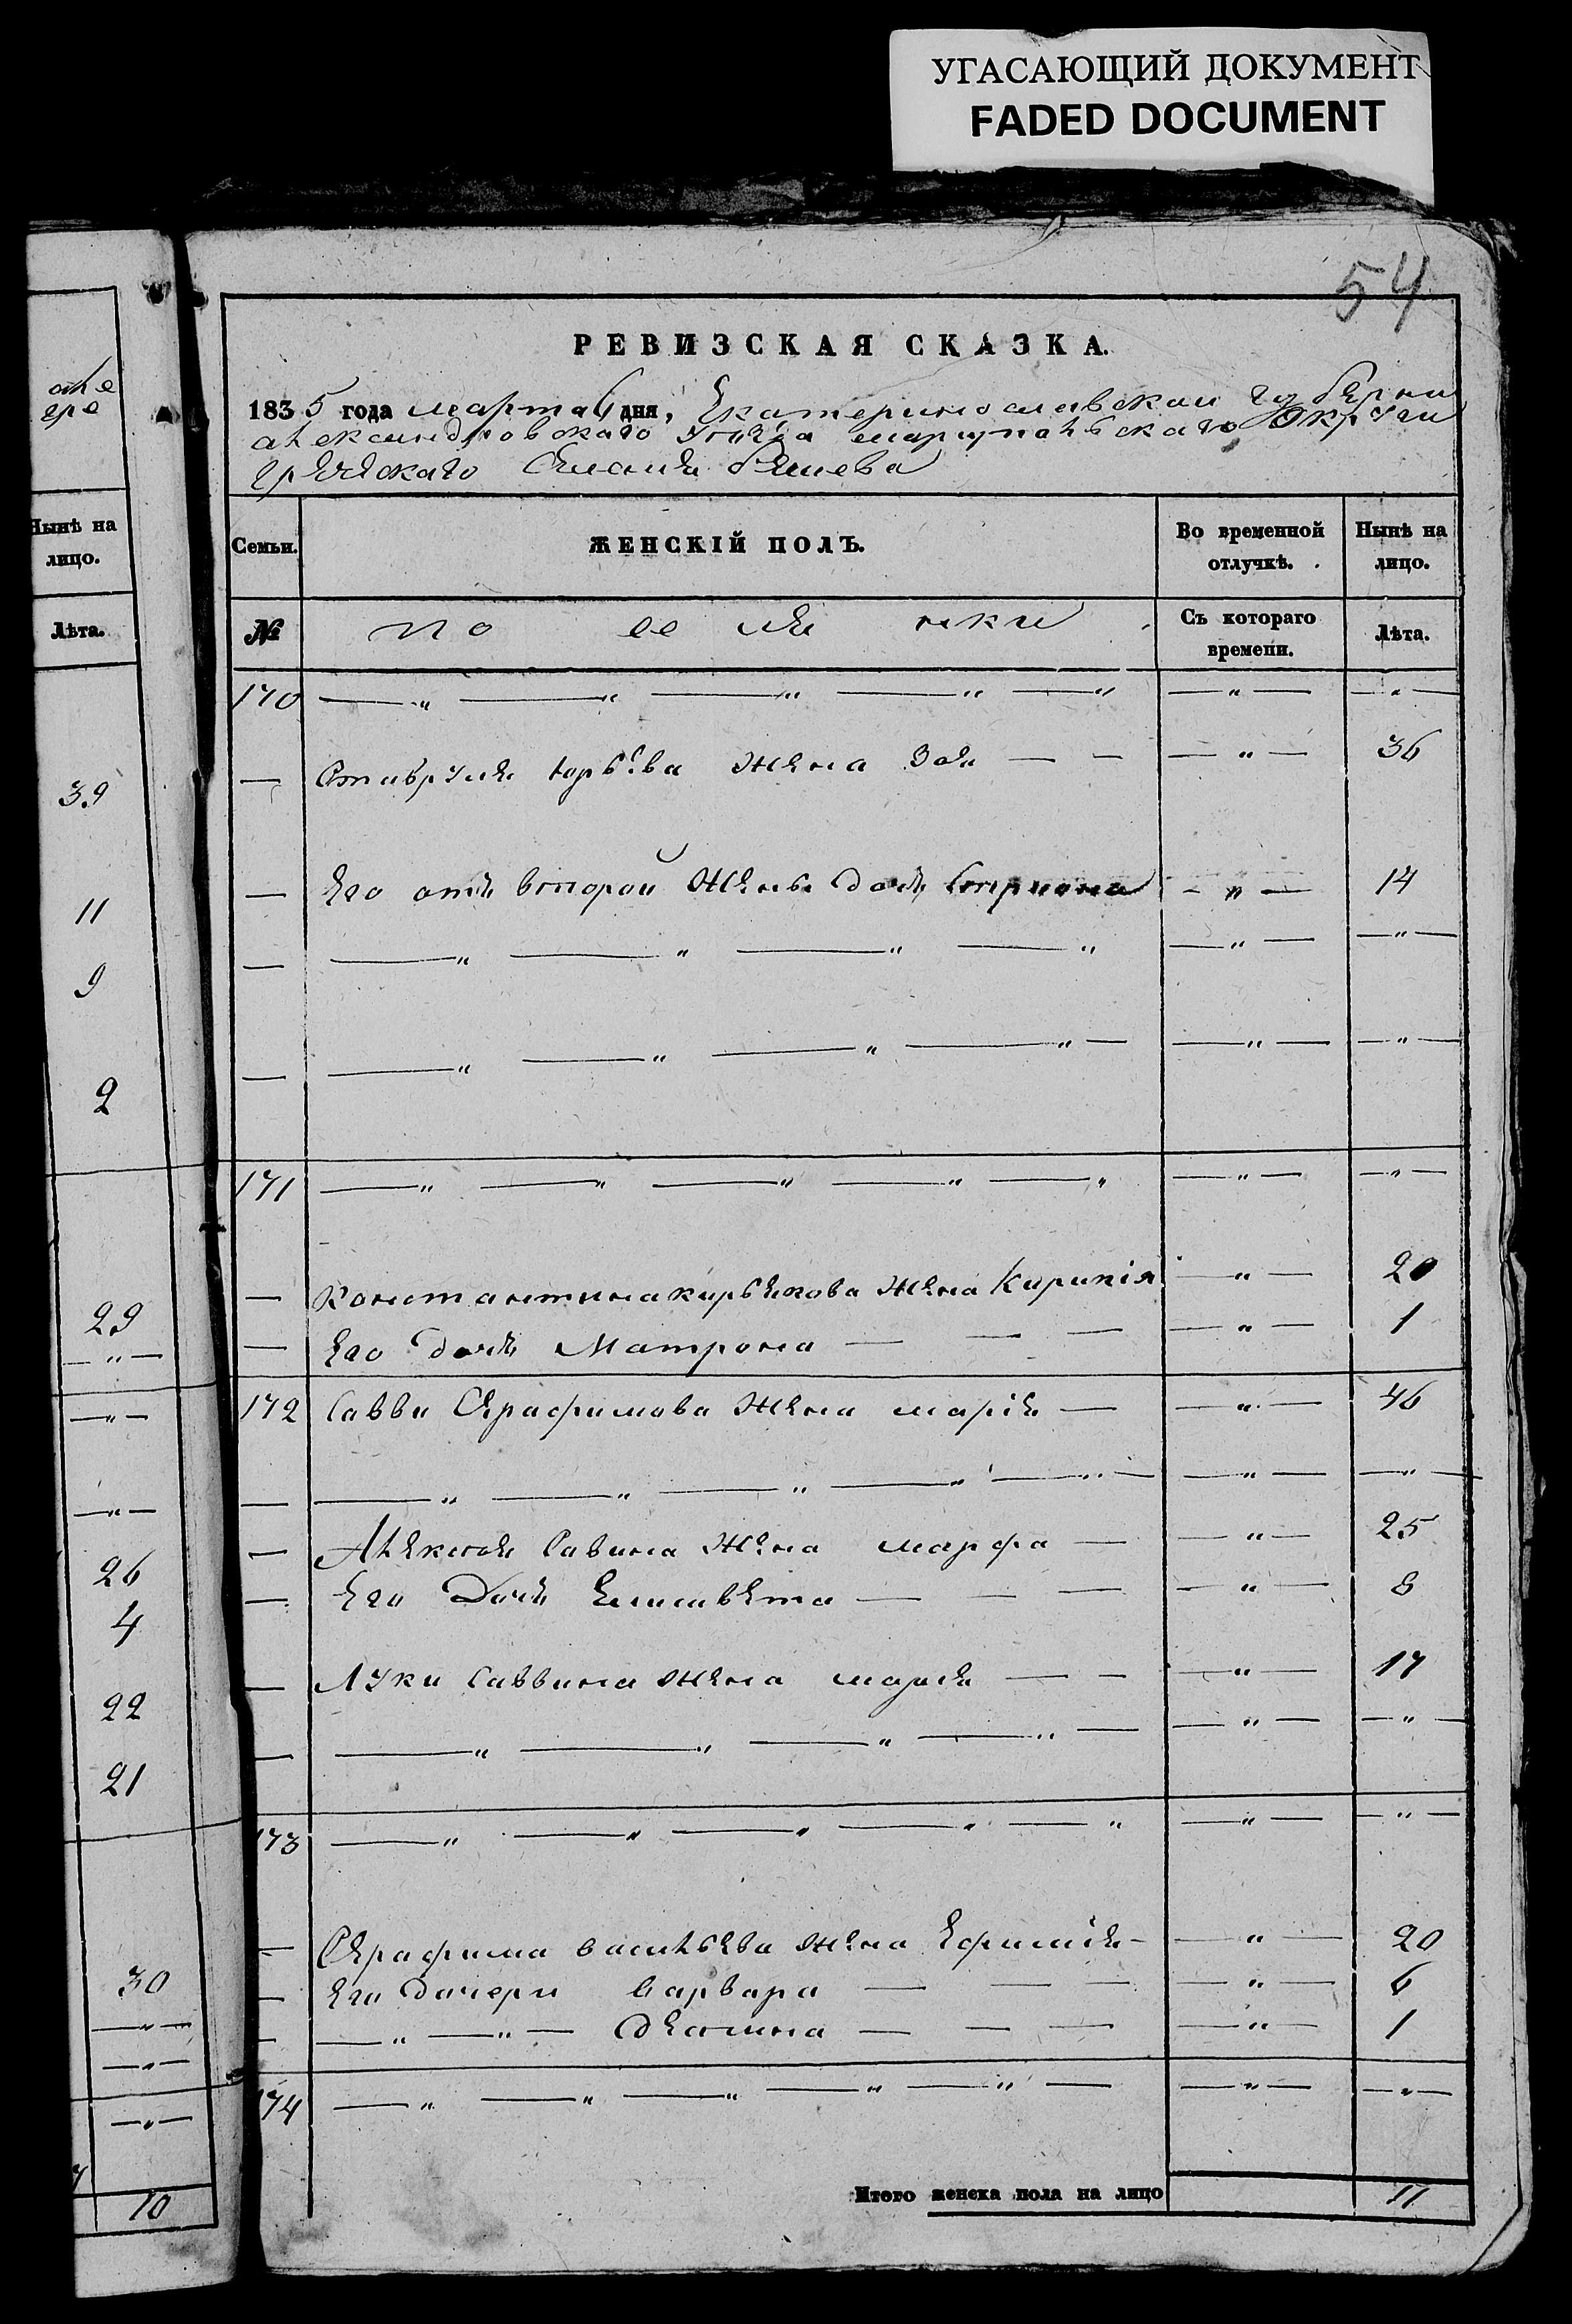 УГАСАЮЩИЙ ДОКУМЕНТ
FADED DOCUMENT
54
РЕВИЗСКАЯ СКАЗКА.
1835 года марта 6 дня, Екатеринославской губерни
александровскаго уезда мариупольскаго Округи
греческаго Селения бешева
Нынѣ на
лицо.
Лѣта.
39
11
9
2
29
— " —
— " —
— " —
26
4
22
21
30
— " —
— " —
— " —
10
Семьи. ЖЕНСКІЙ ПОЛЪ. Во временной отлучкѣ. Нынѣ на лицо.
№ посе ля нки Съ котораго времени. Лѣта.
170 — " — " — " — " — " — " — — " —
— юрьева жена Зоя — — — " — 36
— Его отъ второй жены дочь — " — 14
— — " — " — " — " — " — — " —
— — " — " — " — " — — " — — " —
171 — " — " — " — " — " — " — — " —
— Константина кирьякова жена Кирикія — " — 20
— Его дочь Матрона — — — — " — 1
172 Савви Серафимова жена марія — — " — 46
— — " — " — " — " — " — — " — — " —
— Алексея Савина жена марфа — — " — 25
— Его Дочь Елисавета — — — — " — 8
— Луки Саввина жена мария — — — " — 17
— — " — " — " — " — — " — — " —
173 — " — " — " — " — " — " — — " —
— Серафима васильева жена Ефимія — — " — 20
— Его дочери варвара — — — — " — 6
— — " — " — — — — — " — 1
174 — " — " — " — " — " — — " — — " —
Итого женска пола на лицо 11